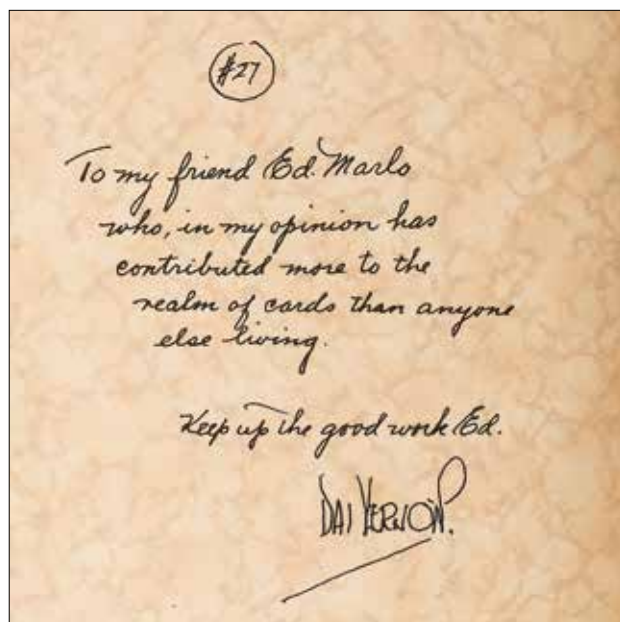 #27
To my friend Ed. Marlo
who, in my opinion has
contributed more to the
realm of cards than anyone
else living.
Keep up the good work Ed.
DAI VERNON.